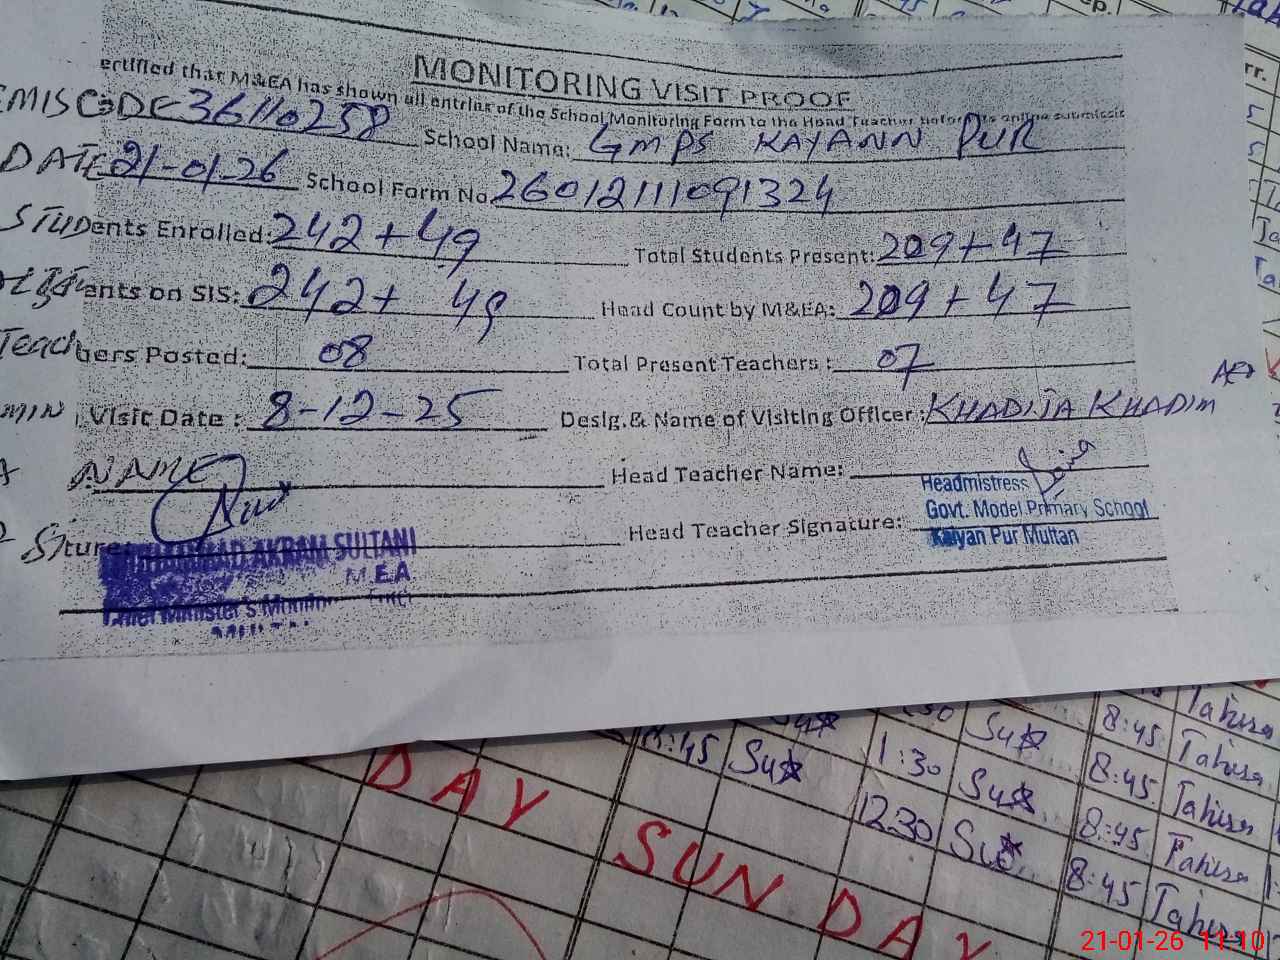 MONITORING VISIT PROOF
ertified that M&EA has shown all entries of the School Monitoring Form to the Head Teacher before its online submissio
EMIS CODE 36110258 School Name: GMPS KAYANN PUR
DATE 21-01-26 School Form No. 26012111091324
STUDents Enrolled: 242+49 Total Students Present: 209+47
ents on SIS: 242+ 49 Head Count by M&EA: 209+47
Teachers Posted: 08 Total Present Teachers : 07
AEO
MIN Visit Date : 8-12-25 Desig.& Name of Visiting Officer : KHADIJA KHADIM
NAME Head Teacher Name:
Headmistress
Govt. Model Primary School
Kalyan Pur Multan
ture: Head Teacher Signature:
AKRAM SULTANI
M.E.A
Chief Minister's
8:45 Tahira
8:45 1:30 8:45 Tahira
12:30 8:45 Tahira
8:45 Tahira
DAY
SUNDAY
21-01-26 11:10